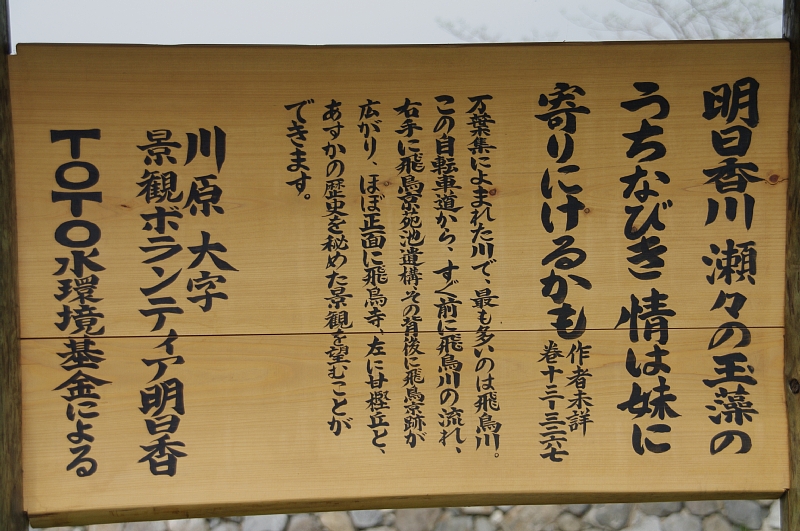 明日香川 瀬々の玉藻の
うちなびき 情は妹に
寄りにけるかも
作者未詳
巻十三-三二六七
万葉集によまれた川で、最も多いのは飛鳥川。
この自転車道から、すぐ前に飛鳥川の流れ、
右手に飛鳥京苑池遺構、その背後に飛鳥京跡が
広がり、ほぼ正面に飛鳥寺、左に甘樫丘と、
あすかの歴史を秘めた景観を望むことが
できます。
川原 大字
景観ボランティア明日香
TOTO水環境基金による